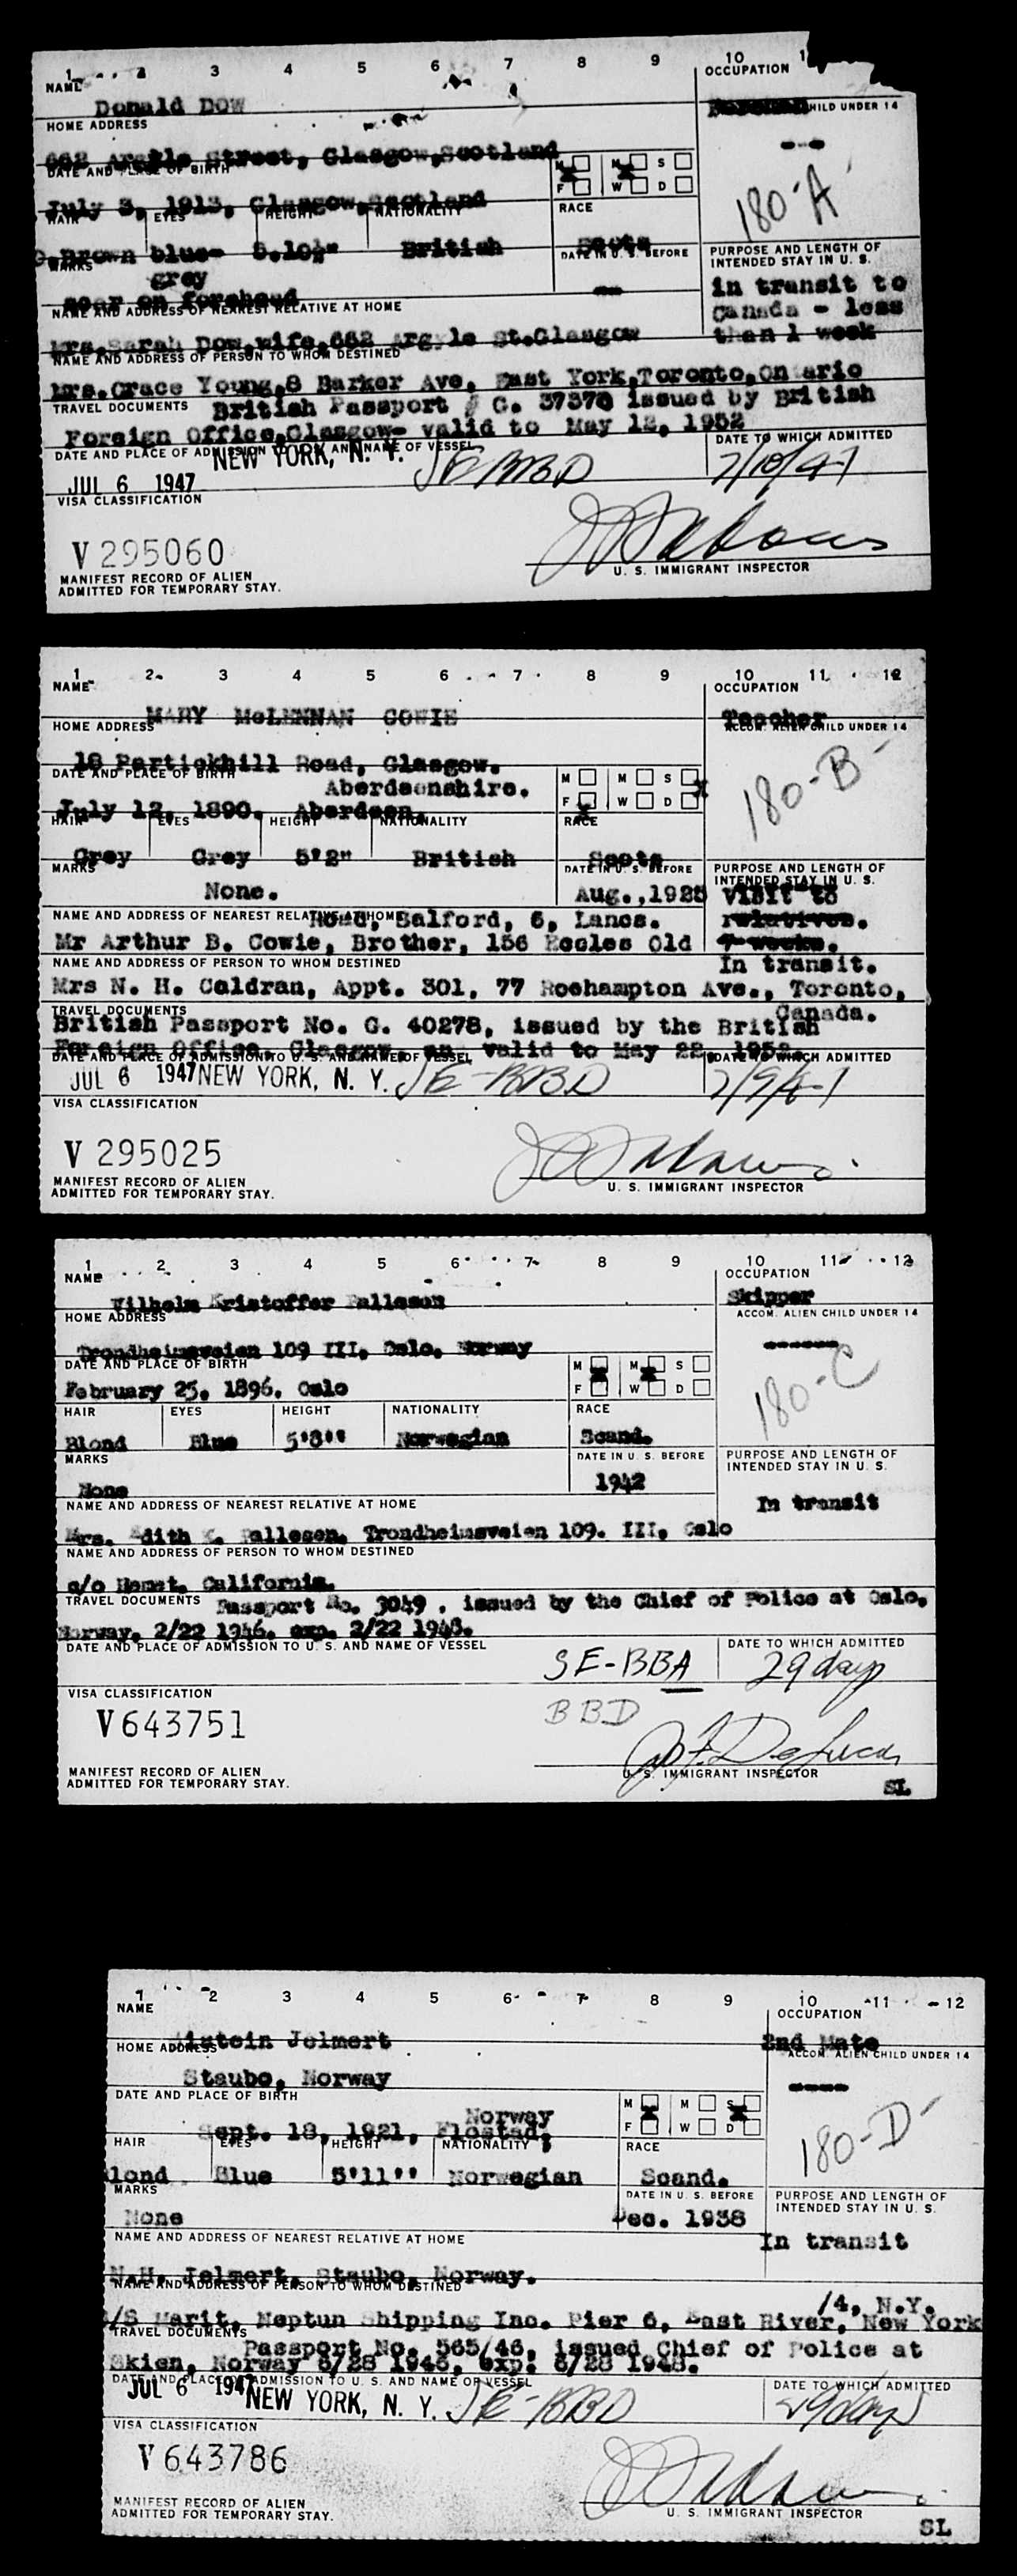 1 2 3 4 5 6 7 8 9 10
NAME OCCUPATION
Donald Dow
HOME ADDRESS CHILD UNDER 14
662 Argyle Street, Glasgow, Scotland
DATE AND PLACE OF BIRTH M M S
July 3, 1913, Glasgow, Scotland F W D
HAIR EYES HEIGHT NATIONALITY RACE
180-A
D.Brown blue- 5.10½" British Scots
grey
MARKS DATE IN U. S. BEFORE PURPOSE AND LENGTH OF
INTENDED STAY IN U. S.
scar on forehead in transit to
NAME AND ADDRESS OF NEAREST RELATIVE AT HOME Canada - less
Mrs. Sarah Dow, wife, 662 Argyle St. Glasgow than 1 week
NAME AND ADDRESS OF PERSON TO WHOM DESTINED
Mrs. Grace Young, 8 Barker Ave, East York, Toronto, Ontario
TRAVEL DOCUMENTS British Passport # C. 37370 issued by British
Foreign Office, Glasgow- valid to May 12, 1952
DATE AND PLACE OF ADMISSION TO U. S. AND NAME OF VESSEL DATE TO WHICH ADMITTED
JUL 6 1947 NEW YORK, N. Y. SE BBD 7/10/47
VISA CLASSIFICATION
V 295060
U. S. IMMIGRANT INSPECTOR
MANIFEST RECORD OF ALIEN
ADMITTED FOR TEMPORARY STAY.
1 2 3 4 5 6 7 8 9 10 11 12
NAME OCCUPATION
MARY McLENNAN COWIE Teacher
HOME ADDRESS ACCOM. ALIEN CHILD UNDER 14
18 Partickhill Road, Glasgow.
DATE AND PLACE OF BIRTH M M S
Aberdeenshire.
180-B
July 12, 1890. Aberdeen, F W D
HAIR EYES HEIGHT NATIONALITY RACE
Grey Grey 5'2" British Scots
MARKS DATE IN U. S. BEFORE PURPOSE AND LENGTH OF
INTENDED STAY IN U. S.
None. Aug., 1925 Visit to
NAME AND ADDRESS OF NEAREST RELATIVE AT HOME Road, Salford, 6, Lancs. relatives.
Mr Arthur B. Cowie, Brother, 156 Eccles Old 7 weeks.
NAME AND ADDRESS OF PERSON TO WHOM DESTINED In transit.
Mrs N. H. Caldran, Appt. 301, 77 Roehampton Ave., Toronto,
TRAVEL DOCUMENTS Canada.
British Passport No. G. 40278, issued by the British
Foreign Office, Glasgow, valid to May 22, 1952
DATE AND PLACE OF ADMISSION TO U. S. AND NAME OF VESSEL DATE TO WHICH ADMITTED
JUL 6 1947 NEW YORK, N. Y. SE-BBD 7/9/47
VISA CLASSIFICATION
V 295025
MANIFEST RECORD OF ALIEN
U. S. IMMIGRANT INSPECTOR
ADMITTED FOR TEMPORARY STAY.
1 2 3 4 5 6 7 8 9 10 11 12
NAME OCCUPATION
Vilhelm Kristoffer Pallesen Skipper
HOME ADDRESS ACCOM. ALIEN CHILD UNDER 14
Trondheimsveien 109 III, Oslo, Norway
DATE AND PLACE OF BIRTH M M S
February 25, 1896, Oslo F W D
180-C
HAIR EYES HEIGHT NATIONALITY RACE
Blond Blue 5'8'' Norwegian Scand.
MARKS DATE IN U. S. BEFORE PURPOSE AND LENGTH OF
INTENDED STAY IN U. S.
None 1942
NAME AND ADDRESS OF NEAREST RELATIVE AT HOME In transit
Mrs. Edith K. Pallesen, Trondheimsveien 109. III, Oslo
NAME AND ADDRESS OF PERSON TO WHOM DESTINED
c/o Hemet, California.
TRAVEL DOCUMENTS Passport No. 3049 . issued by the Chief of Police at Oslo,
Norway, 2/22 1946. exp. 2/22 1948.
DATE AND PLACE OF ADMISSION TO U. S. AND NAME OF VESSEL DATE TO WHICH ADMITTED
SE-BBA 29 days
VISA CLASSIFICATION
BBD
V 643751
MANIFEST RECORD OF ALIEN
U. S. IMMIGRANT INSPECTOR
ADMITTED FOR TEMPORARY STAY.
SL
1 2 3 4 5 6 7 8 9 10 11 12
NAME OCCUPATION
Eistein Jelmert 2nd Mate
HOME ADDRESS ACCOM. ALIEN CHILD UNDER 14
Staubo, Norway
DATE AND PLACE OF BIRTH M M S
Norway
Sept. 18, 1921, Flostad, F W D
180-D
HAIR EYES HEIGHT NATIONALITY RACE
Blond Blue 5'11'' Norwegian Scand.
MARKS DATE IN U. S. BEFORE PURPOSE AND LENGTH OF
INTENDED STAY IN U. S.
None Dec. 1938
NAME AND ADDRESS OF NEAREST RELATIVE AT HOME In transit
N.H. Jelmert, Staubo, Norway.
NAME AND ADDRESS OF PERSON TO WHOM DESTINED
14, N.Y.
/S Marit, Neptun Shipping Inc. Pier 6, East River, New York
TRAVEL DOCUMENTS
Passport No. 565/46, issued Chief of Police at
Skien, Norway 6/28 1946, exp. 6/28 1948.
DATE AND PLACE OF ADMISSION TO U. S. AND NAME OF VESSEL DATE TO WHICH ADMITTED
JUL 6 1947 NEW YORK, N. Y. SE-BBD 29 days
VISA CLASSIFICATION
V 643786
MANIFEST RECORD OF ALIEN
U. S. IMMIGRANT INSPECTOR
ADMITTED FOR TEMPORARY STAY.
SL